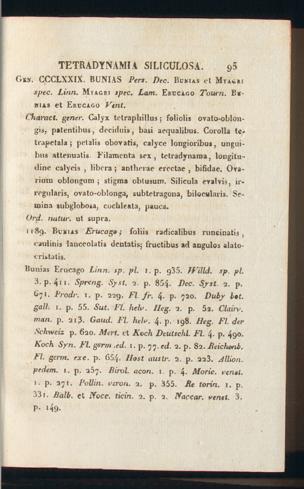 TETRADYNAMIA SILICULOSA. 95
GEN. CCCLXXIX. BUNIAS Pers. Dec. BUNIAS et MYAGRI
spec. Linn. MYAGRI spec. Lam. ERUCAGO Tourn. BU-
NIAS et ERUCAGO Vent.
Charact. gener. Calyx tetraphillus; foliolis ovato-oblon-
gis, patentibus, deciduis, basi aequalibus. Corolla te-
trapetala; petalis obovatis, calyce longioribus, ungui-
bus attenuatis. Filamenta sex, tetradynama, longitu-
dine calycis, libera; antherae erectae, bifidae. Ova-
rium oblongum; stigma obtusum. Silicula evalvis, ir-
regularis, ovato-oblonga, subtetragona, bilocularis. Se-
mina subglobosa, cochleata, pauca.
Ord. natur. ut supra.
1189. BUNIAS Erucago; foliis radicalibus runcinatis,
caulinis lanceolatis dentatis; fructibus ad angulos alato-
cristatis.
Bunias Erucago Linn. sp. pl. 1. p. 935. Willd. sp. pl.
3. p. 411. Spreng. Syst. 2. p. 854. Dec. Syst. 2. p.
671. Prodr. 1. p. 229. Fl. fr. 4. p. 720. Duby bot.
gall. 1. p. 55. Sut. Fl. helv. Heg. 2. p. 52. Clairv.
man. p. 213. Gaud. Fl. helv. 4. p. 198. Heg. Fl. der
Schweiz p. 620. Mert. et Koch Deutschl. Fl. 4. p. 490.
Koch Syn. Fl. germ. ed. 1. p. 77. ed. 2. p. 82. Reichenb.
Fl. germ. exc. p. 654. Host austr. 2. p. 223. Allion.
pedem. 1. p. 257. Birol. acon. 1. p. 4. Moric. venet.
1. p. 271. Pollin. veron. 2. p. 355. Re torin. 1. p.
331. Balb. et Nocc. ticin. 2. p. 2. Naccar. venet. 3.
p. 149.